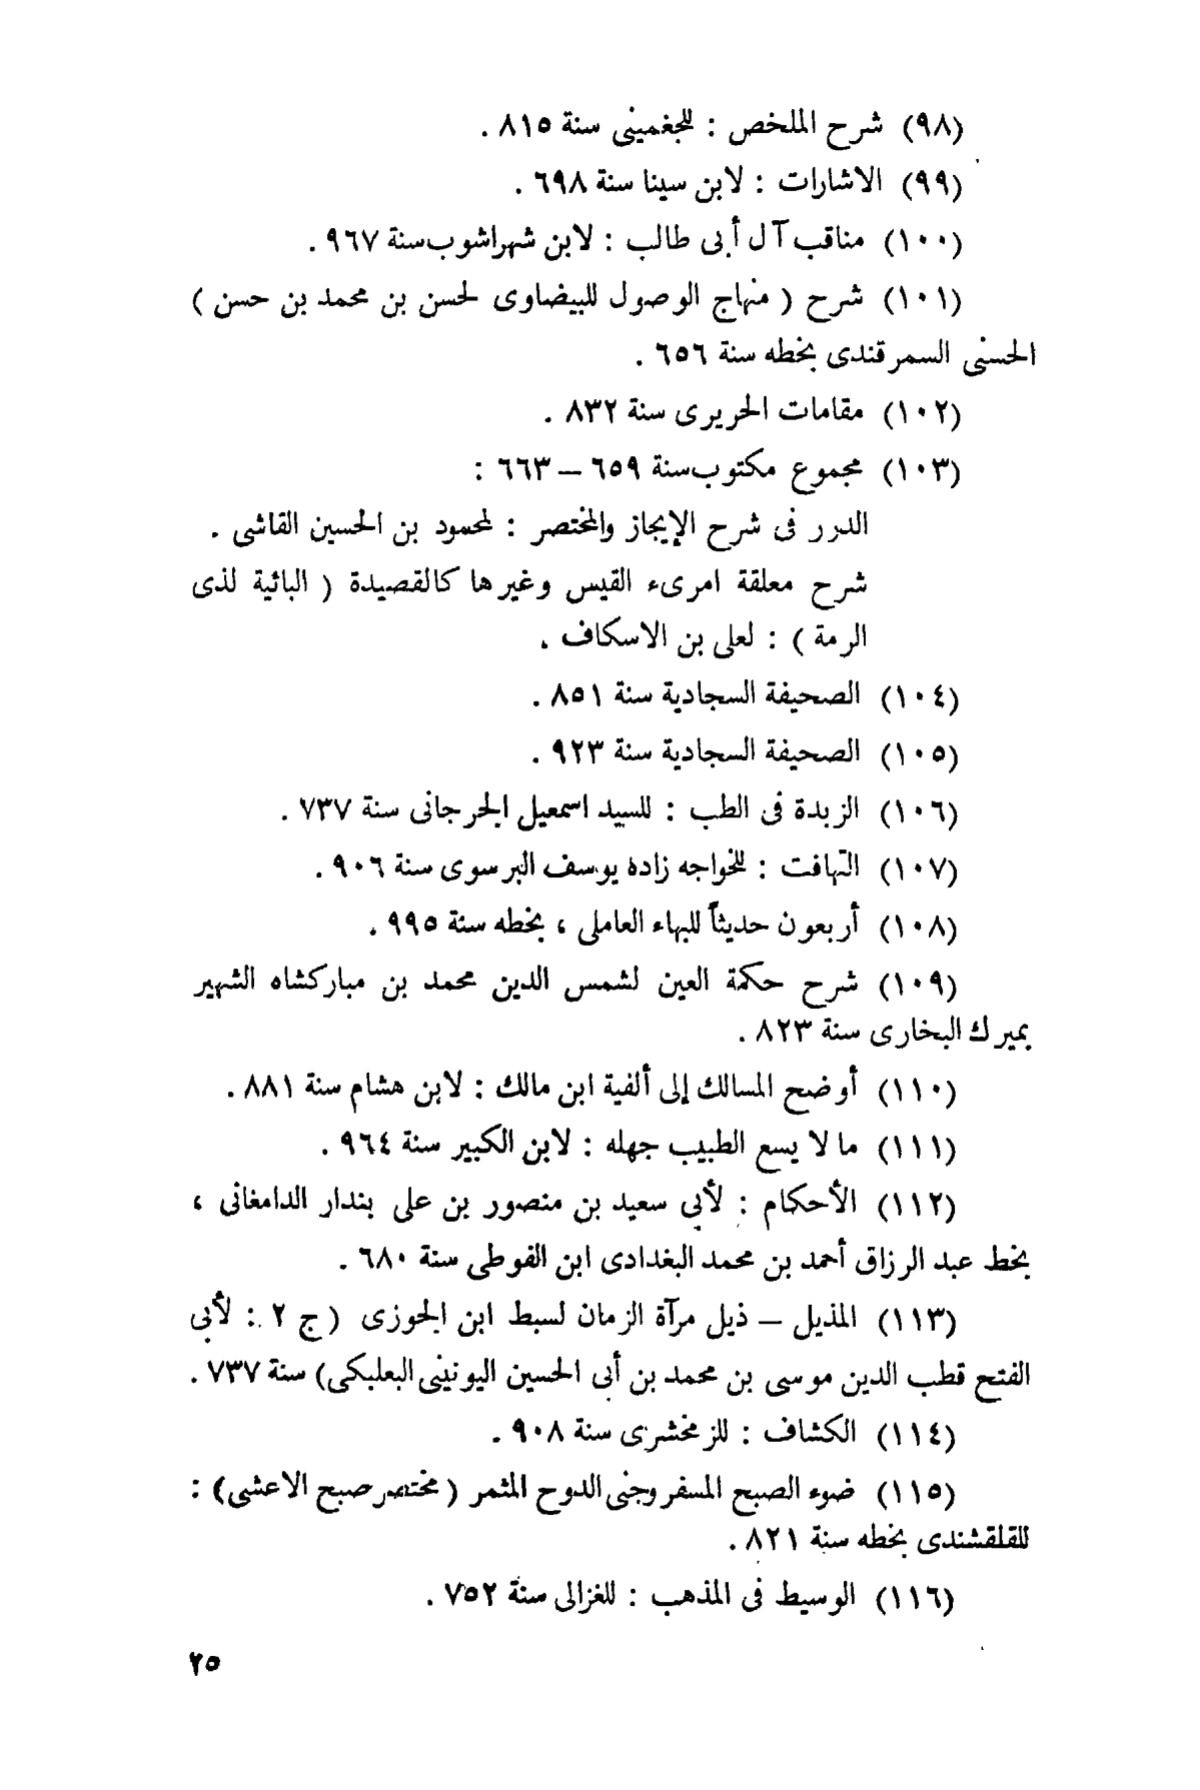 (٩٨) شرح الملخص : للجغمينى سنة ٨١٥ .
(٩٩) الاشارات : لابن سينا سنة ٦٩٨ .
(١٠٠) مناقب آل أبى طالب : لابن شهراشوب سنة ٩٦٧ .
(١٠١) شرح ( منهاج الوصول للبيضاوى لحسن بن محمد بن حسن )
الحسنى السمرقندى بخطه سنة ٦٥٦ .
(١٠٢) مقامات الحريرى سنة ٨٣٢ .
(١٠٣) مجموع مكتوب سنة ٦٥٩ – ٦٦٣ :
الدرر فى شرح الإيجاز والمختصر : لمحمود بن الحسين القاشى .
شرح معلقة امرىء القيس وغيرها كالقصيدة ( البائية لذى
الرمة ) : لعلى بن الاسكاف .
(١٠٤) الصحيفة السجادية سنة ٨٥١ .
(١٠٥) الصحيفة السجادية سنة ٩٢٣ .
(١٠٦) الزبدة فى الطب : للسيد اسمعيل الجرجانى سنة ٧٣٧ .
(١٠٧) التهافت : للخواجه زاده يوسف البرسوى سنة ٩٠٦ .
(١٠٨) أربعون حديثاً للبهاء العاملى ، بخطه سنة ٩٩٥ .
(١٠٩) شرح حكمة العين لشمس الدين محمد بن مباركشاه الشهير
بميرك البخارى سنة ٨٢٣ .
(١١٠) أوضح المسالك إلى ألفية ابن مالك : لابن هشام سنة ٨٨١ .
(١١١) ما لا يسع الطبيب جهله : لابن الكبير سنة ٩٦٤ .
(١١٢) الأحكام : لأبى سعيد بن منصور بن على بندار الدامغانى ،
بخط عبد الرزاق أحمد بن محمد البغدادى ابن الفوطى سنة ٦٨٠ .
(١١٣) المذيل – ذيل مرآة الزمان لسبط ابن الجوزى ( ج ٢ : لأبى
الفتح قطب الدين موسى بن محمد بن أبى الحسين اليونينى البعلبكى) سنة ٧٣٧ .
(١١٤) الكشاف : للزمخشرى سنة ٩٠٨ .
(١١٥) ضوء الصبح المسفر وجنى الدوح المثمر ( مختصر صبح الاعشى) :
للقلقشندى بخطه سنة ٨٢١ .
(١١٦) الوسيط فى المذهب : للغزالى سنة ٧٥٢ .
٢٥